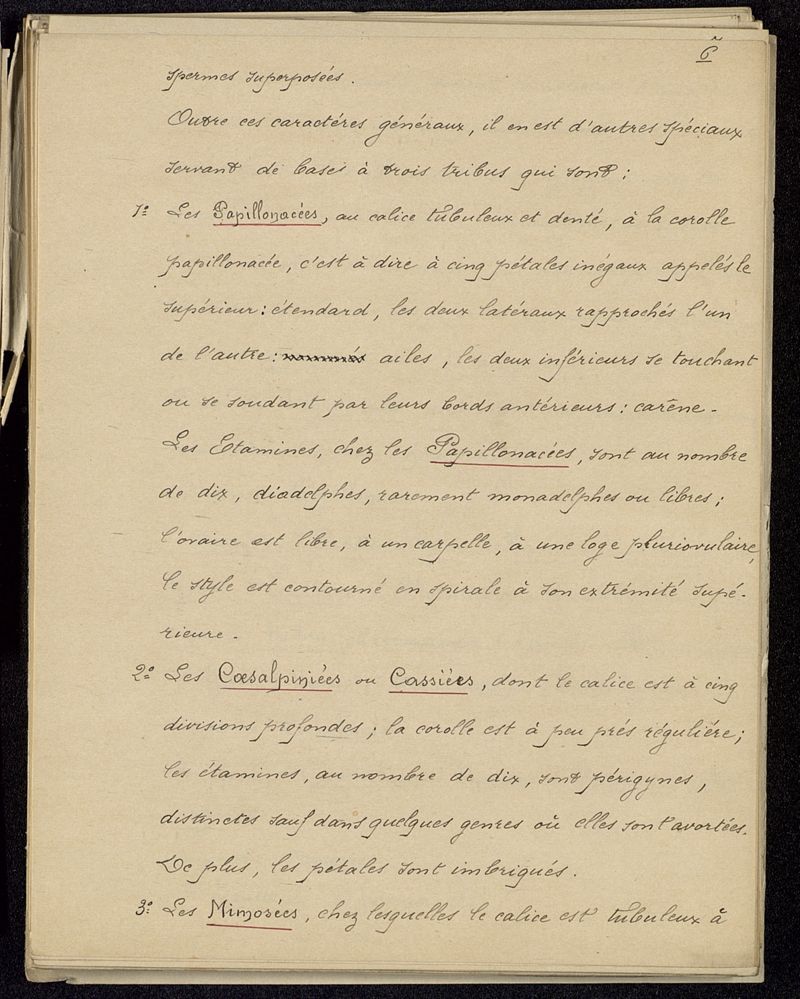 6
spermes superposées.
Outre ces caractéres généraux, il en est d'autres spéciaux
servant de bases à trois tribus qui sont:
1º Les Papillonacées, au calice tubuleux et denté, à la corolle
papillonacée, c'est à dire à cinq pétales inégaux appelés le
supérieur: étendard, les deux latéraux rapprochés l'un
de l'autre: ailes, les deux inférieurs se touchant
ou se soudant par leurs bords antérieurs: carène.
Les Etamines, chez les Papillonacées, sont au nombre
de dix, diadelphes, rarement monadelphes ou libres;
l'ovaire est libre, à un carpelle, à une loge pluriovulaire,
le style est contourné en spirale à son extrémité supé-
rieure.
2º Les Cœsalpiniées ou Cassiées, dont le calice est à cinq
divisions profondes; la corolle est à peu prés réguliére;
les étamines, au nombre de dix, sont périgynes,
distinctes sauf dans quelques genres où elles sont avortées.
De plus, les pétales sont imbriqués.
3º Les Mimosées, chez lesquelles le calice est tubuleux à